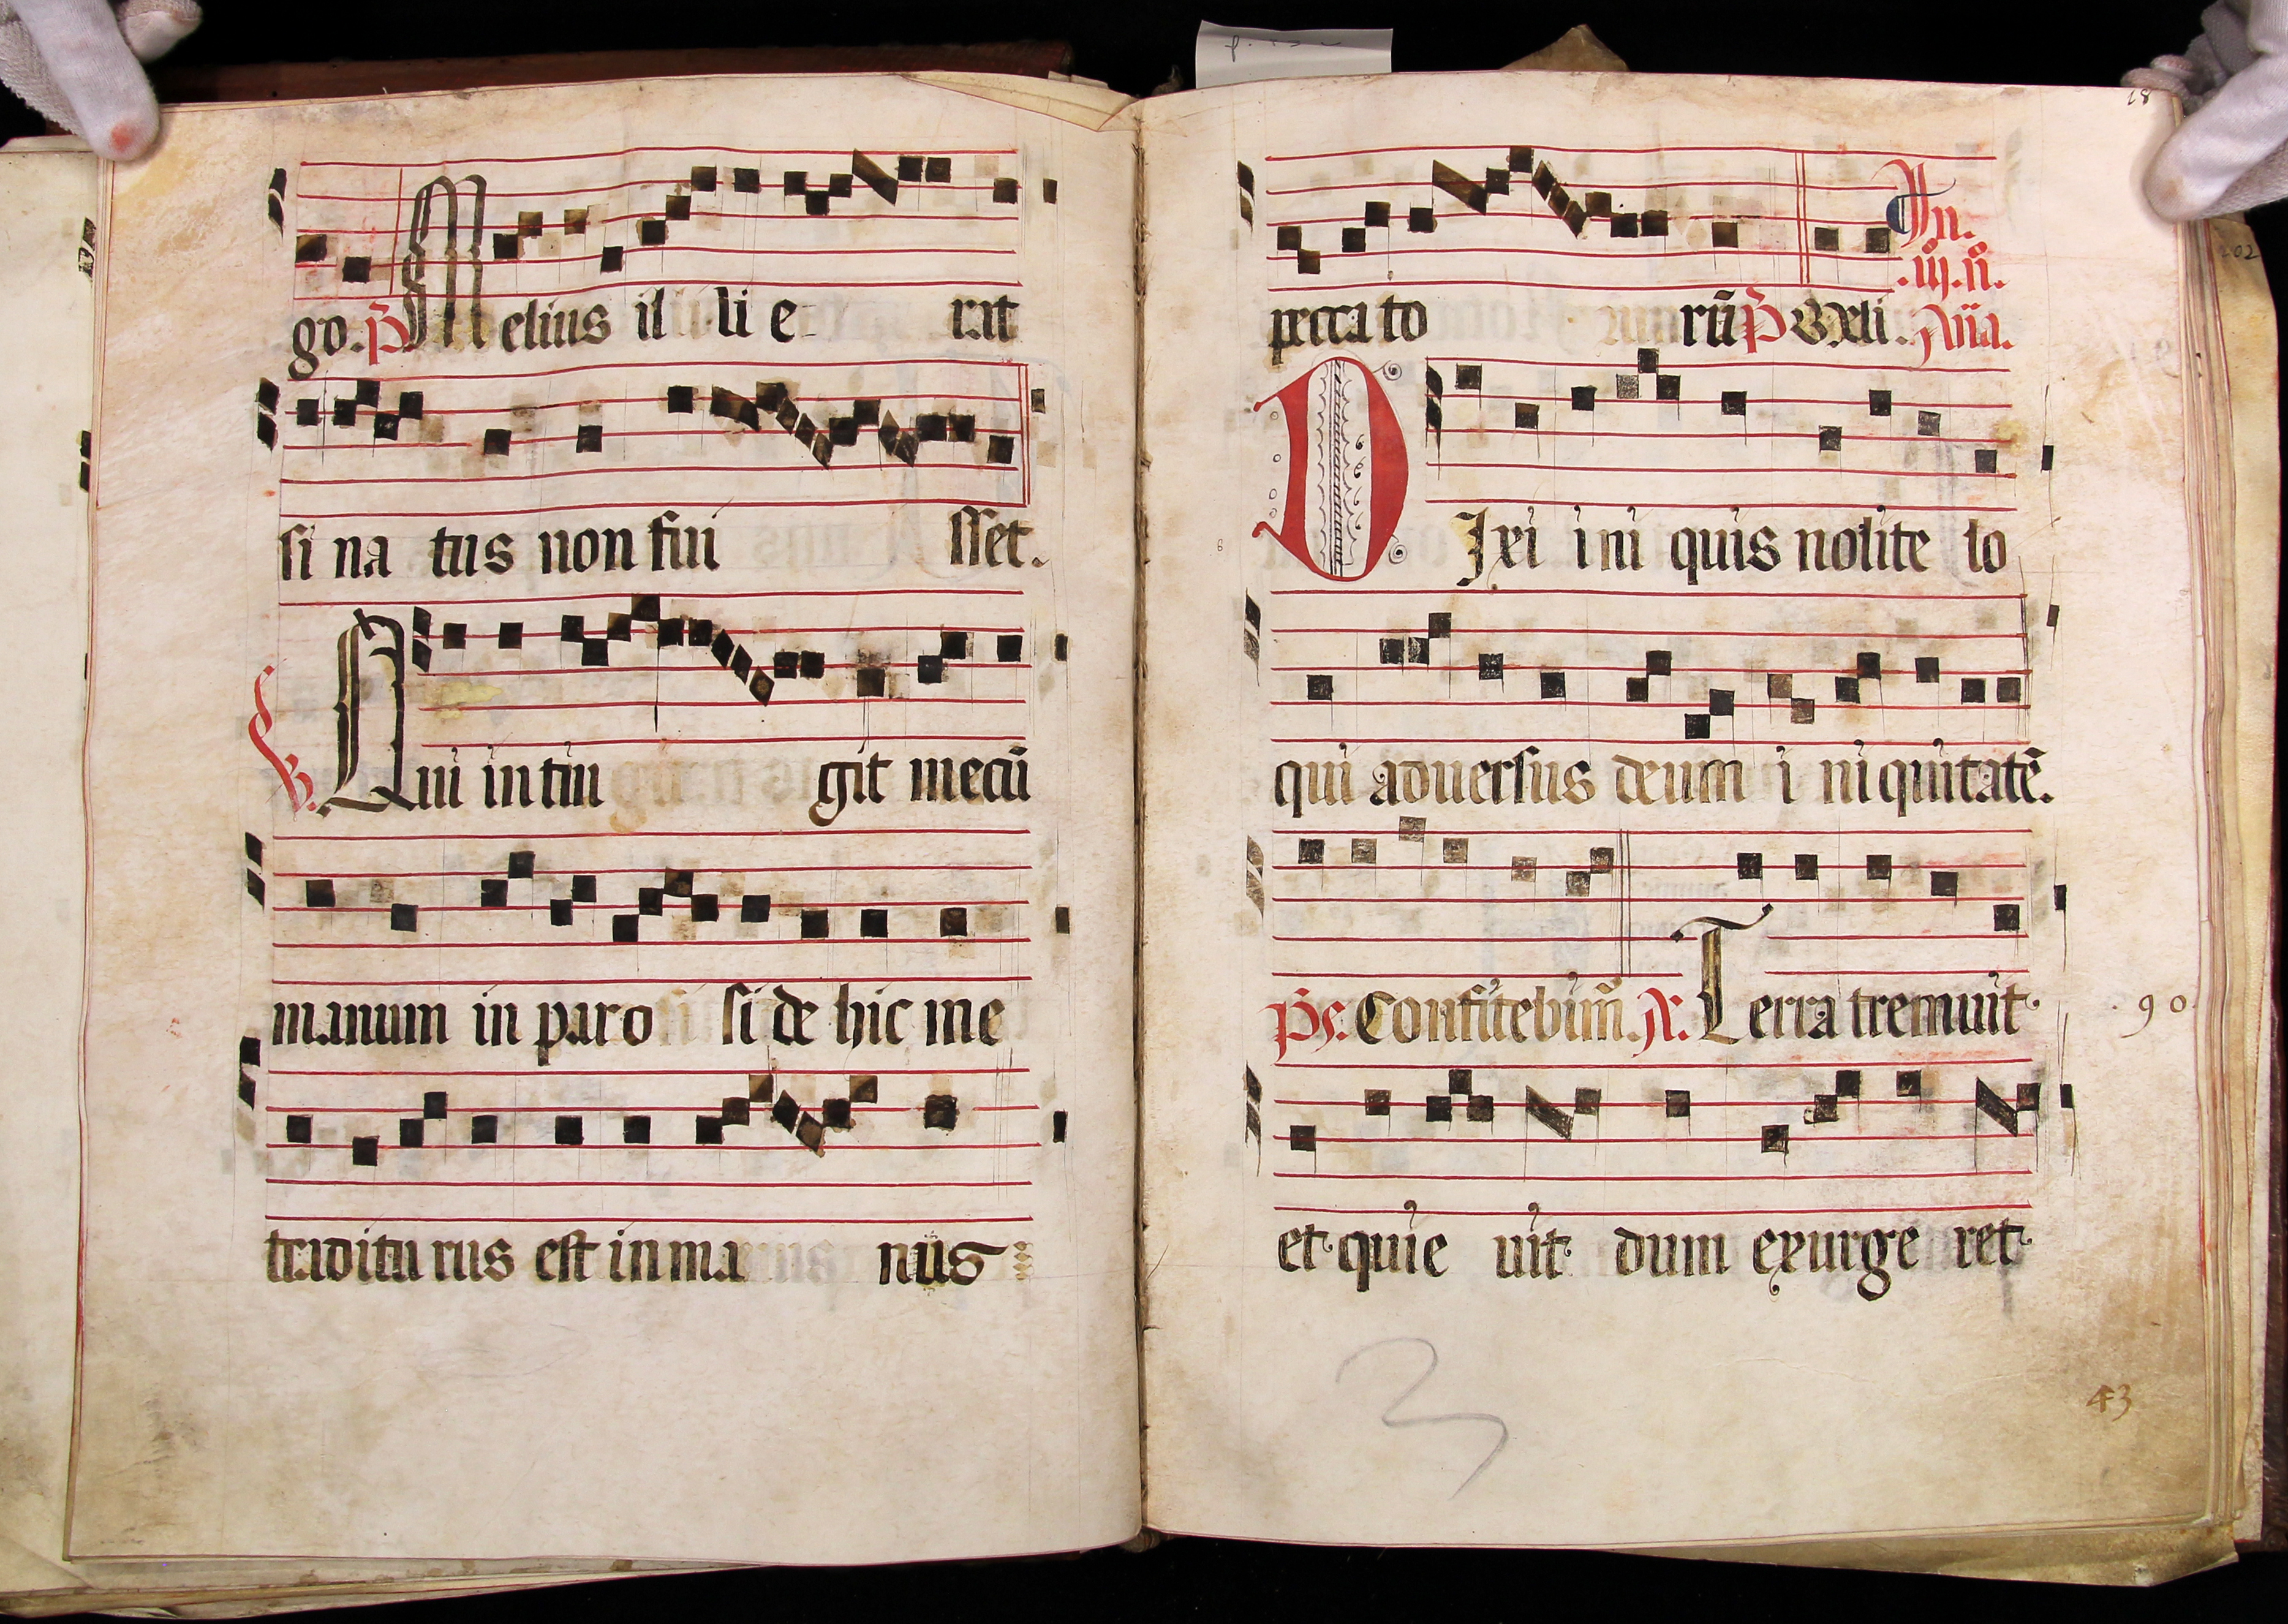 go. p̃ Melius il li e rat
si na tus non fui sset.
℣. Qui intin git mecū
manum in paro si de hic me
traditu rus est in ma nus
18
In.
.iij. ñ.
pecca to rū p̃ Vẽ li. Aña.
DIxi ini quis nolite lo
qui aduersus deum i niquitatē.
Ps. Confitebim̃. ℟. Terra tremuit
90.
et quie uit dum exurge ret
43